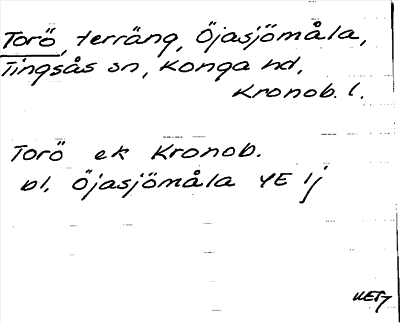 Torö, terräng, Öjasjömåla,
Tingsås sn, Konga hd,
Kronob. l.
Torö ek Kronob.
bl. Öjasjömåla 4E 1j